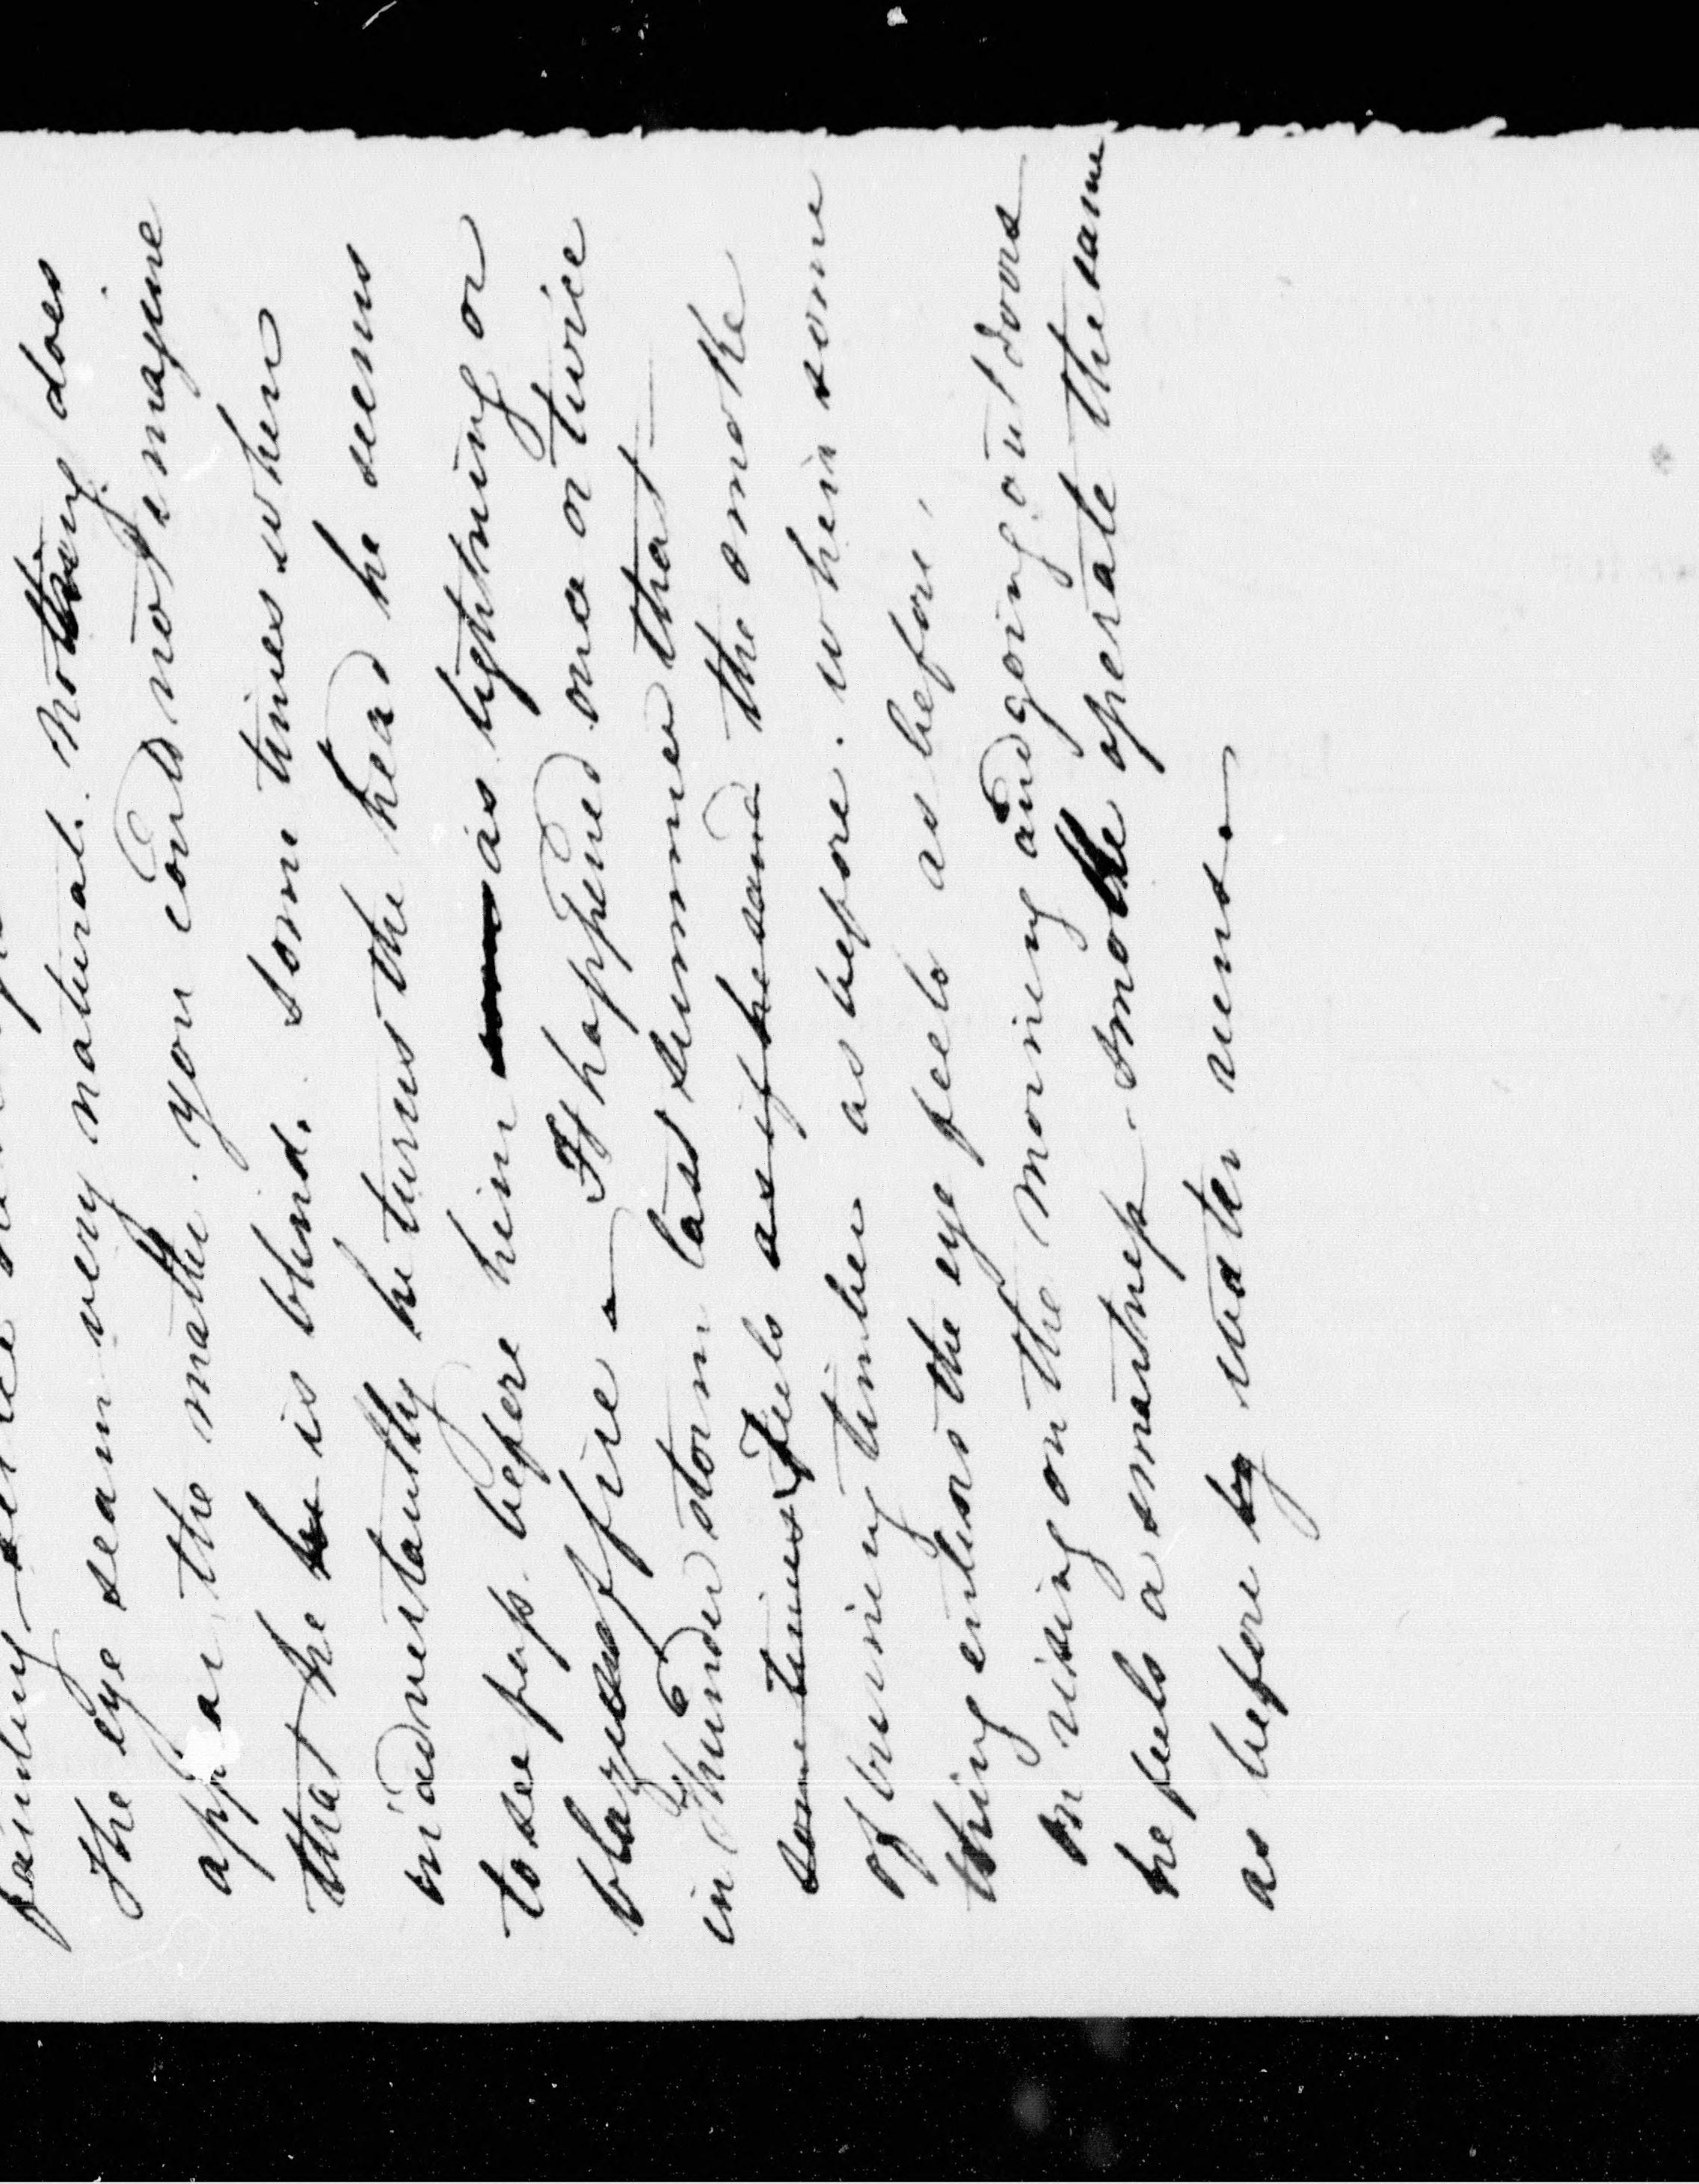 The eye seam very natural. Nothing does
appear the matter. you could not imagine
that he is blind. Some times when
inadvertantly he turns the head he seems
to see pup. before him as lightning or
blazes of fire - It happened once or twice
in thunder storm last summer that
some times Feels as if he sand the smoke
of burning timber as before. when some
thing enters the eye feels as before,
On rising on the morning and going out doors
he feels a smartnep - smoke operate the same
as before by water runs -